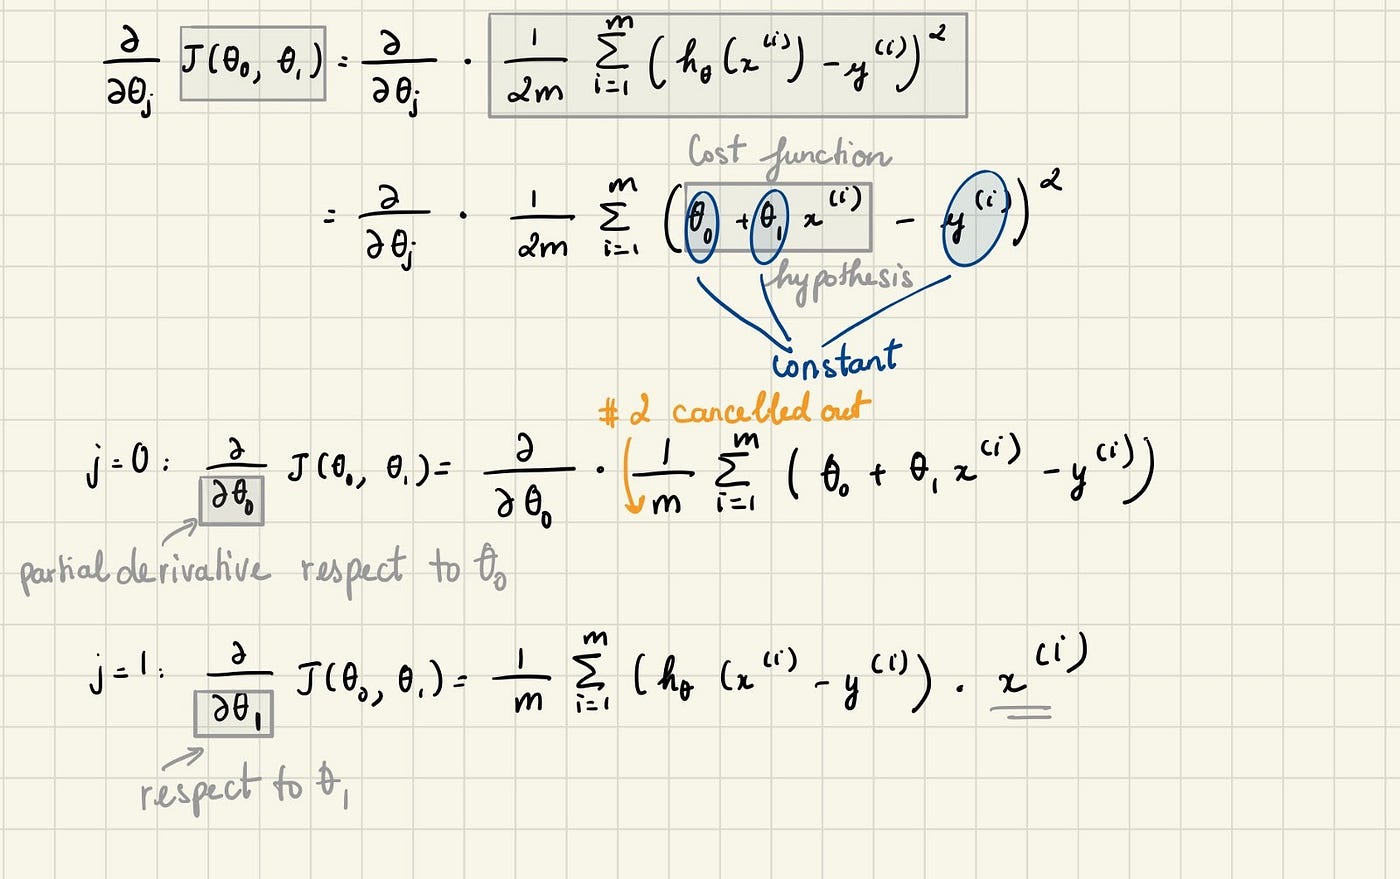 ∂/∂θⱼ J(θ₀, θ₁) = ∂/∂θⱼ · 1/2m Σᵢ₌₁ᵐ (h_θ(x⁽ⁱ⁾) − y⁽ⁱ⁾)²
Cost function
= ∂/∂θⱼ · 1/2m Σᵢ₌₁ᵐ (θ₀ + θ₁ x⁽ⁱ⁾ − y⁽ⁱ⁾)²
hypothesis
constant
# 2 cancelled out
j = 0 : ∂/∂θ₀ J(θ₀, θ₁) = ∂/∂θ₀ · 1/m Σᵢ₌₁ᵐ (θ₀ + θ₁ x⁽ⁱ⁾ − y⁽ⁱ⁾)
partial derivative respect to θ₀
j = 1 : ∂/∂θ₁ J(θ₀, θ₁) = 1/m Σᵢ₌₁ᵐ (h_θ (x⁽ⁱ⁾ − y⁽ⁱ⁾) · x⁽ⁱ⁾
respect to θ₁